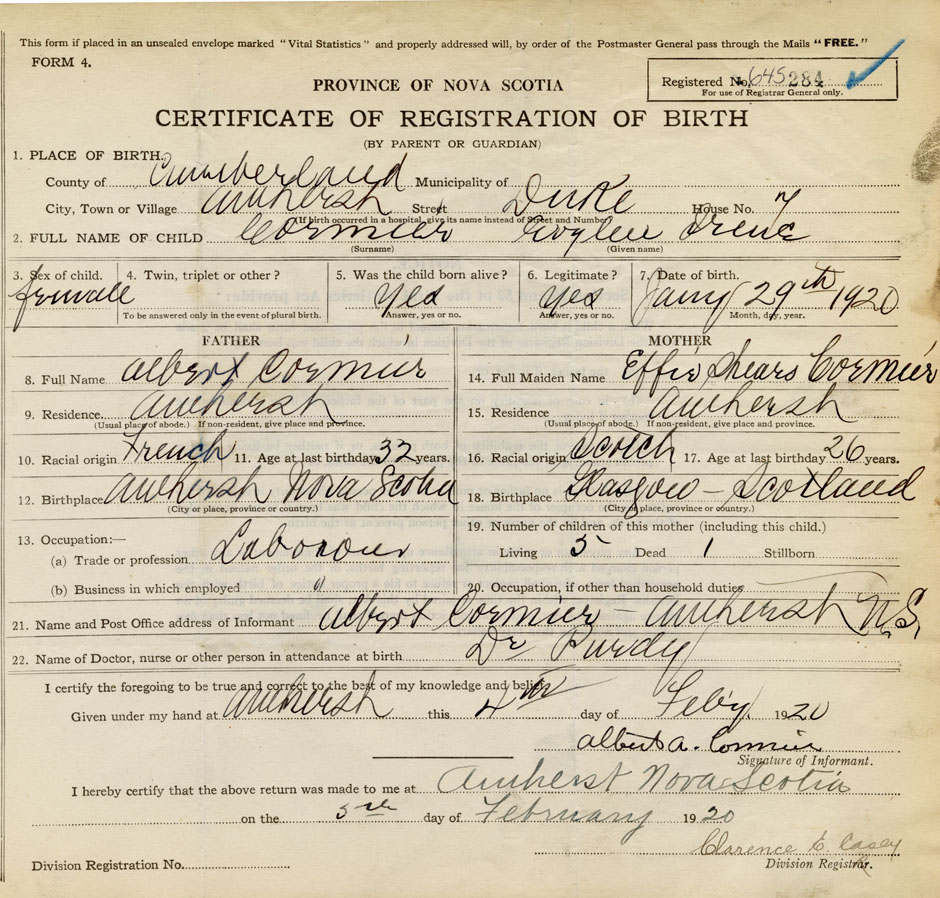 This form if placed in an unsealed envelope marked "Vital Statistics" and properly addressed will, by order of the Postmaster General pass through the Mails "FREE."
FORM 4.
Registered No. 645284
For use of Registrar General only.
PROVINCE OF NOVA SCOTIA
CERTIFICATE OF REGISTRATION OF BIRTH
(BY PARENT OR GUARDIAN)
1. PLACE OF BIRTH.
County of Cumberland Municipality of
City, Town or Village Amherst Street Duke House No. 7
(If birth occurred in a hospital, give its name instead of Street and Number)
2. FULL NAME OF CHILD Cormier Irene
(Surname) (Given name)
3. Sex of child. 4. Twin, triplet or other? 5. Was the child born alive? 6. Legitimate? 7. Date of birth.
female Yes Yes Jany 29th 1920
To be answered only in the event of plural birth. Answer, yes or no. Answer, yes or no. Month, day, year.
FATHER MOTHER
8. Full Name Albert Cormier 14. Full Maiden Name Effie Shears Cormier
9. Residence Amherst 15. Residence Amherst
(Usual place of abode.) If non-resident, give place and province. (Usual place of abode.) If non-resident, give place and province.
10. Racial origin French 11. Age at last birthday 32 years. 16. Racial origin Scotch 17. Age at last birthday 26 years.
12. Birthplace Amherst Nova Scotia 18. Birthplace Glasgow – Scotland
(City or place, province or country.) (City or place, province or country.)
13. Occupation:— 19. Number of children of this mother (including this child.)
(a) Trade or profession Labourer Living 5 Dead 1 Stillborn
(b) Business in which employed " 20. Occupation, if other than household duties
21. Name and Post Office address of Informant Albert Cormier – Amherst N.S.
22. Name of Doctor, nurse or other person in attendance at birth Dr Purdy
I certify the foregoing to be true and correct to the best of my knowledge and belief
Given under my hand at Amherst this 4th day of Feby. 1920
Albert A. Cormier
Signature of Informant.
I hereby certify that the above return was made to me at Amherst Nova Scotia
on the 5th day of February 1920
Clarence E. Casey
Division Registration No. Division Registrar.